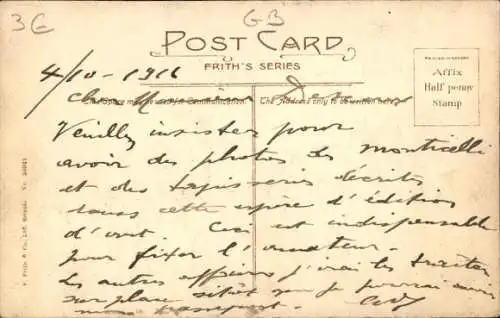 3€
GB
POST CARD
FRITH'S SERIES
4/10 - 1916
PRINTED MATTER
Affix
Half penny
Stamp
This Space may be used for Communication
The Address only to be written here
cher Monsieur
Veuillez insister pour
avoir des photos des monticelli
et des tapisseries décrites
dans cette espère d'édition
d'art. Ceci est indispensable
pour fixer l'amateur.
Les autres affaires j'irai les traiter
sur place sitôt que je pourrai avoir
mon passeport.